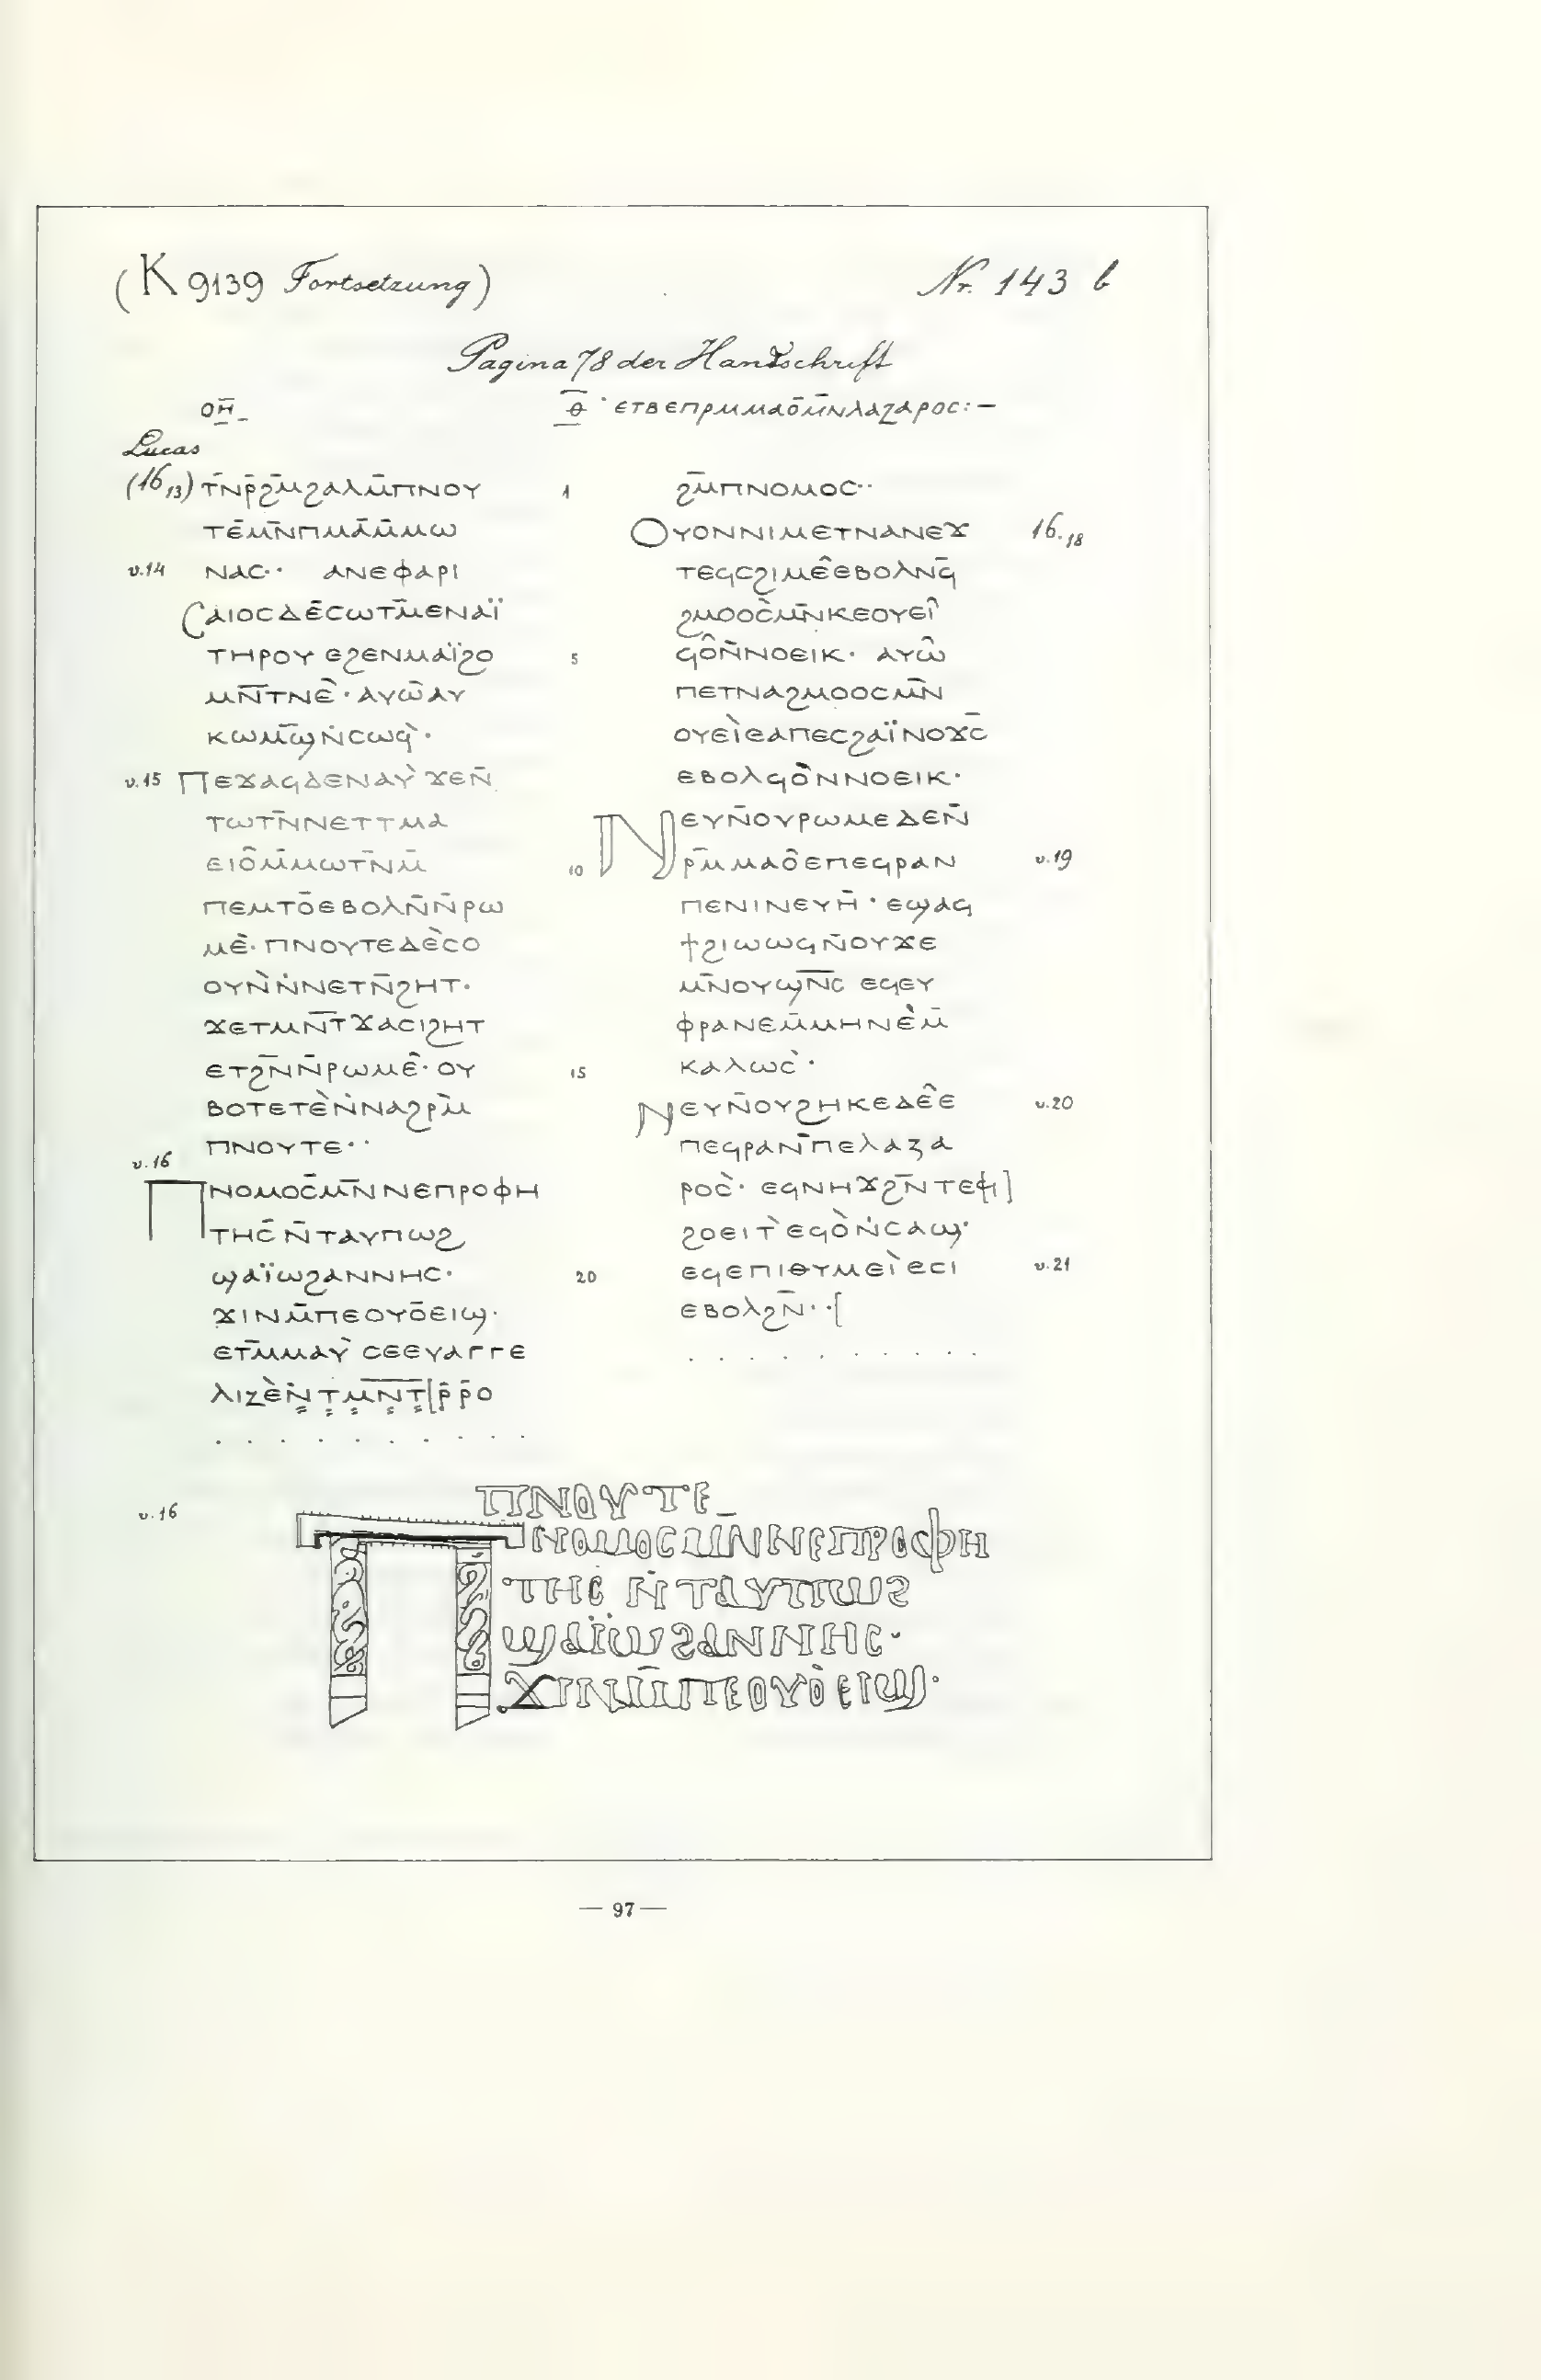 (K 9139 Fortsetzung)
Nr. 143 b
Pagina 78 der Handschrift
ⲟⲏ̅
ⲑ̅ · ⲉⲧⲃⲉⲡⲣⲙⲙⲁⲟ̄ⲙ̄ⲛⲗⲁⲍⲁⲣⲟⲥ:—
Lucas
(16,13) ⲧ̄ⲛⲣ̄ϩⲙ̄ϩⲁⲗⲙ̄ⲡⲛⲟⲩ
ⲧⲉ̄ⲙ̄ⲛⲡⲙⲁ̄ⲙ̄ⲙⲱ
v.14 ⲛⲁⲥ·· ⲁⲛⲉⲫⲁⲣⲓ
ⲥⲁⲓⲟⲥⲇⲉ̄ⲥⲱⲧⲙ̄ⲉⲛⲁⲓ̈
ⲧⲏⲣⲟⲩ ⲉϩⲉⲛⲙⲁⲓ̈ϩⲟ
ⲙⲛ̄ⲧⲛⲉ̂· ⲁⲩⲱ̂ⲁⲩ
ⲕⲱⲙ̄ϣⲛ̇ⲥⲱϥ̀·
v.15 ⲡⲉϫⲁϥⲇⲉⲛⲁⲩ̀ ϫⲉⲛ̄
ⲧⲱⲧⲛ̄ⲛⲉⲧⲧⲙⲁ
ⲉⲓⲟ̂ⲙ̄ⲙⲱⲧⲛ̄ⲙ̄
ⲡⲉⲙⲧⲟ̄ⲉⲃⲟⲗⲛ̄ⲛ̄ⲣⲱ
ⲙⲉ̀· ⲡⲛⲟⲩⲧⲉⲇⲉ̀ⲥⲟ
ⲟⲩⲛ̀ⲛ̇ⲛⲉⲧⲛ̄ϩⲏⲧ·
ϫⲉⲧⲙⲛ̄ⲧϫⲁⲥⲓϩⲏⲧ
ⲉⲧϩⲛ̄ⲛ̄ⲣⲱⲙⲉ̂· ⲟⲩ
ⲃⲟⲧⲉⲧⲉ̀ⲛ̇ⲛⲁϩⲣⲙ̄
ⲡⲛⲟⲩⲧⲉ··
v.16 ⲡⲛⲟⲙⲟⲥ̄ⲙ̄ⲛⲛⲉⲡⲣⲟⲫⲏ
ⲧⲏⲥ̄ ⲛ̄ⲧⲁⲩⲡⲱϩ
ϣⲁⲓ̈ⲱϩⲁⲛⲛⲏⲥ·
ϫⲓⲛⲙ̄ⲡⲉⲟⲩⲟ̄ⲉⲓϣ·
ⲉⲧⲙ̄ⲙⲁⲩ̀ ⲥⲉⲉⲩⲁⲅⲅⲉ
ⲗⲓⲍⲉ̀ⲛ̣̇ⲧ̣ⲙ̣ⲛ̣̄ⲧ̣[ⲣ̄ⲣ̄ⲟ
. . . . . . . . . .
1 ϩⲙ̄ⲡⲛⲟⲙⲟⲥ··
ⲟⲩⲟⲛⲛⲓⲙⲉⲧⲛⲁⲛⲉϫ 16,18
ⲧⲉϥⲥϩⲓⲙⲉ̂ⲉⲃⲟⲗⲛϥ̄
ϩⲙⲟⲟⲥ̀ⲙ̄ⲛⲕⲉⲟⲩⲉⲓ̂
5 ϥⲟ̂ⲛ̄ⲛⲟⲉⲓⲕ· ⲁⲩⲱ̂
ⲡⲉⲧⲛⲁϩⲙⲟⲟⲥⲙ̄ⲛ
ⲟⲩⲉⲓ̀ⲉⲁⲡⲉⲥϩⲁⲓ̈ⲛⲟϫⲥ̄
ⲉⲃⲟⲗϥⲟ̀ⲛⲛⲟⲉⲓⲕ·
ⲛⲉⲩⲛ̄ⲟⲩⲣⲱⲙⲉⲇⲉⲛ̄
10 ⲣⲙ̄ⲙⲁⲟ̂ⲉⲡⲉϥⲣⲁⲛ v.19
ⲡⲉⲛⲓⲛⲉⲩⲏ̄· ⲉϣⲁϥ
ϯϩⲓⲱⲱϥⲛ̄ⲟⲩϫⲉ
ⲙ̄ⲛⲟⲩϣⲛ̄ⲥ ⲉϥⲉⲩ
ⲫⲣⲁⲛⲉⲙ̄ⲙⲏⲛⲉ̀ⲙ̄
15 ⲕⲁⲗⲱⲥ̀·
ⲛⲉⲩⲛ̄ⲟⲩϩⲏⲕⲉⲇⲉ̂ⲉ v.20
ⲡⲉϥⲣⲁⲛ̄ⲡⲉⲗⲁⲍⲁ
ⲣⲟⲥ̀· ⲉϥⲛⲏϫϩⲛ̄ⲧⲉϥ]
ϩⲟⲉⲓⲧ̀ⲉϥⲟ̀ⲛ̇ⲥⲁϣ·
20 ⲉϥⲉⲡⲓⲑⲩⲙⲉⲓ̀ⲉⲥⲓ v.21
ⲉⲃⲟⲗϩⲛ̄··[
. . . . . . . . .
ⲡⲛⲟⲩⲧⲉ
v.16 ⲡⲛⲟⲙⲟⲥⲙ̄ⲛⲛⲉⲡⲣⲟⲫⲏ
ⲧⲏⲥ ⲛ̇ⲧⲁⲩⲡⲱϩ
ϣⲁⲓ̈ⲱϩⲁⲛⲛⲏⲥ·
ϫⲓⲛⲙ̄ⲡⲉⲟⲩⲟ̀ⲉⲓϣ·
— 97 —